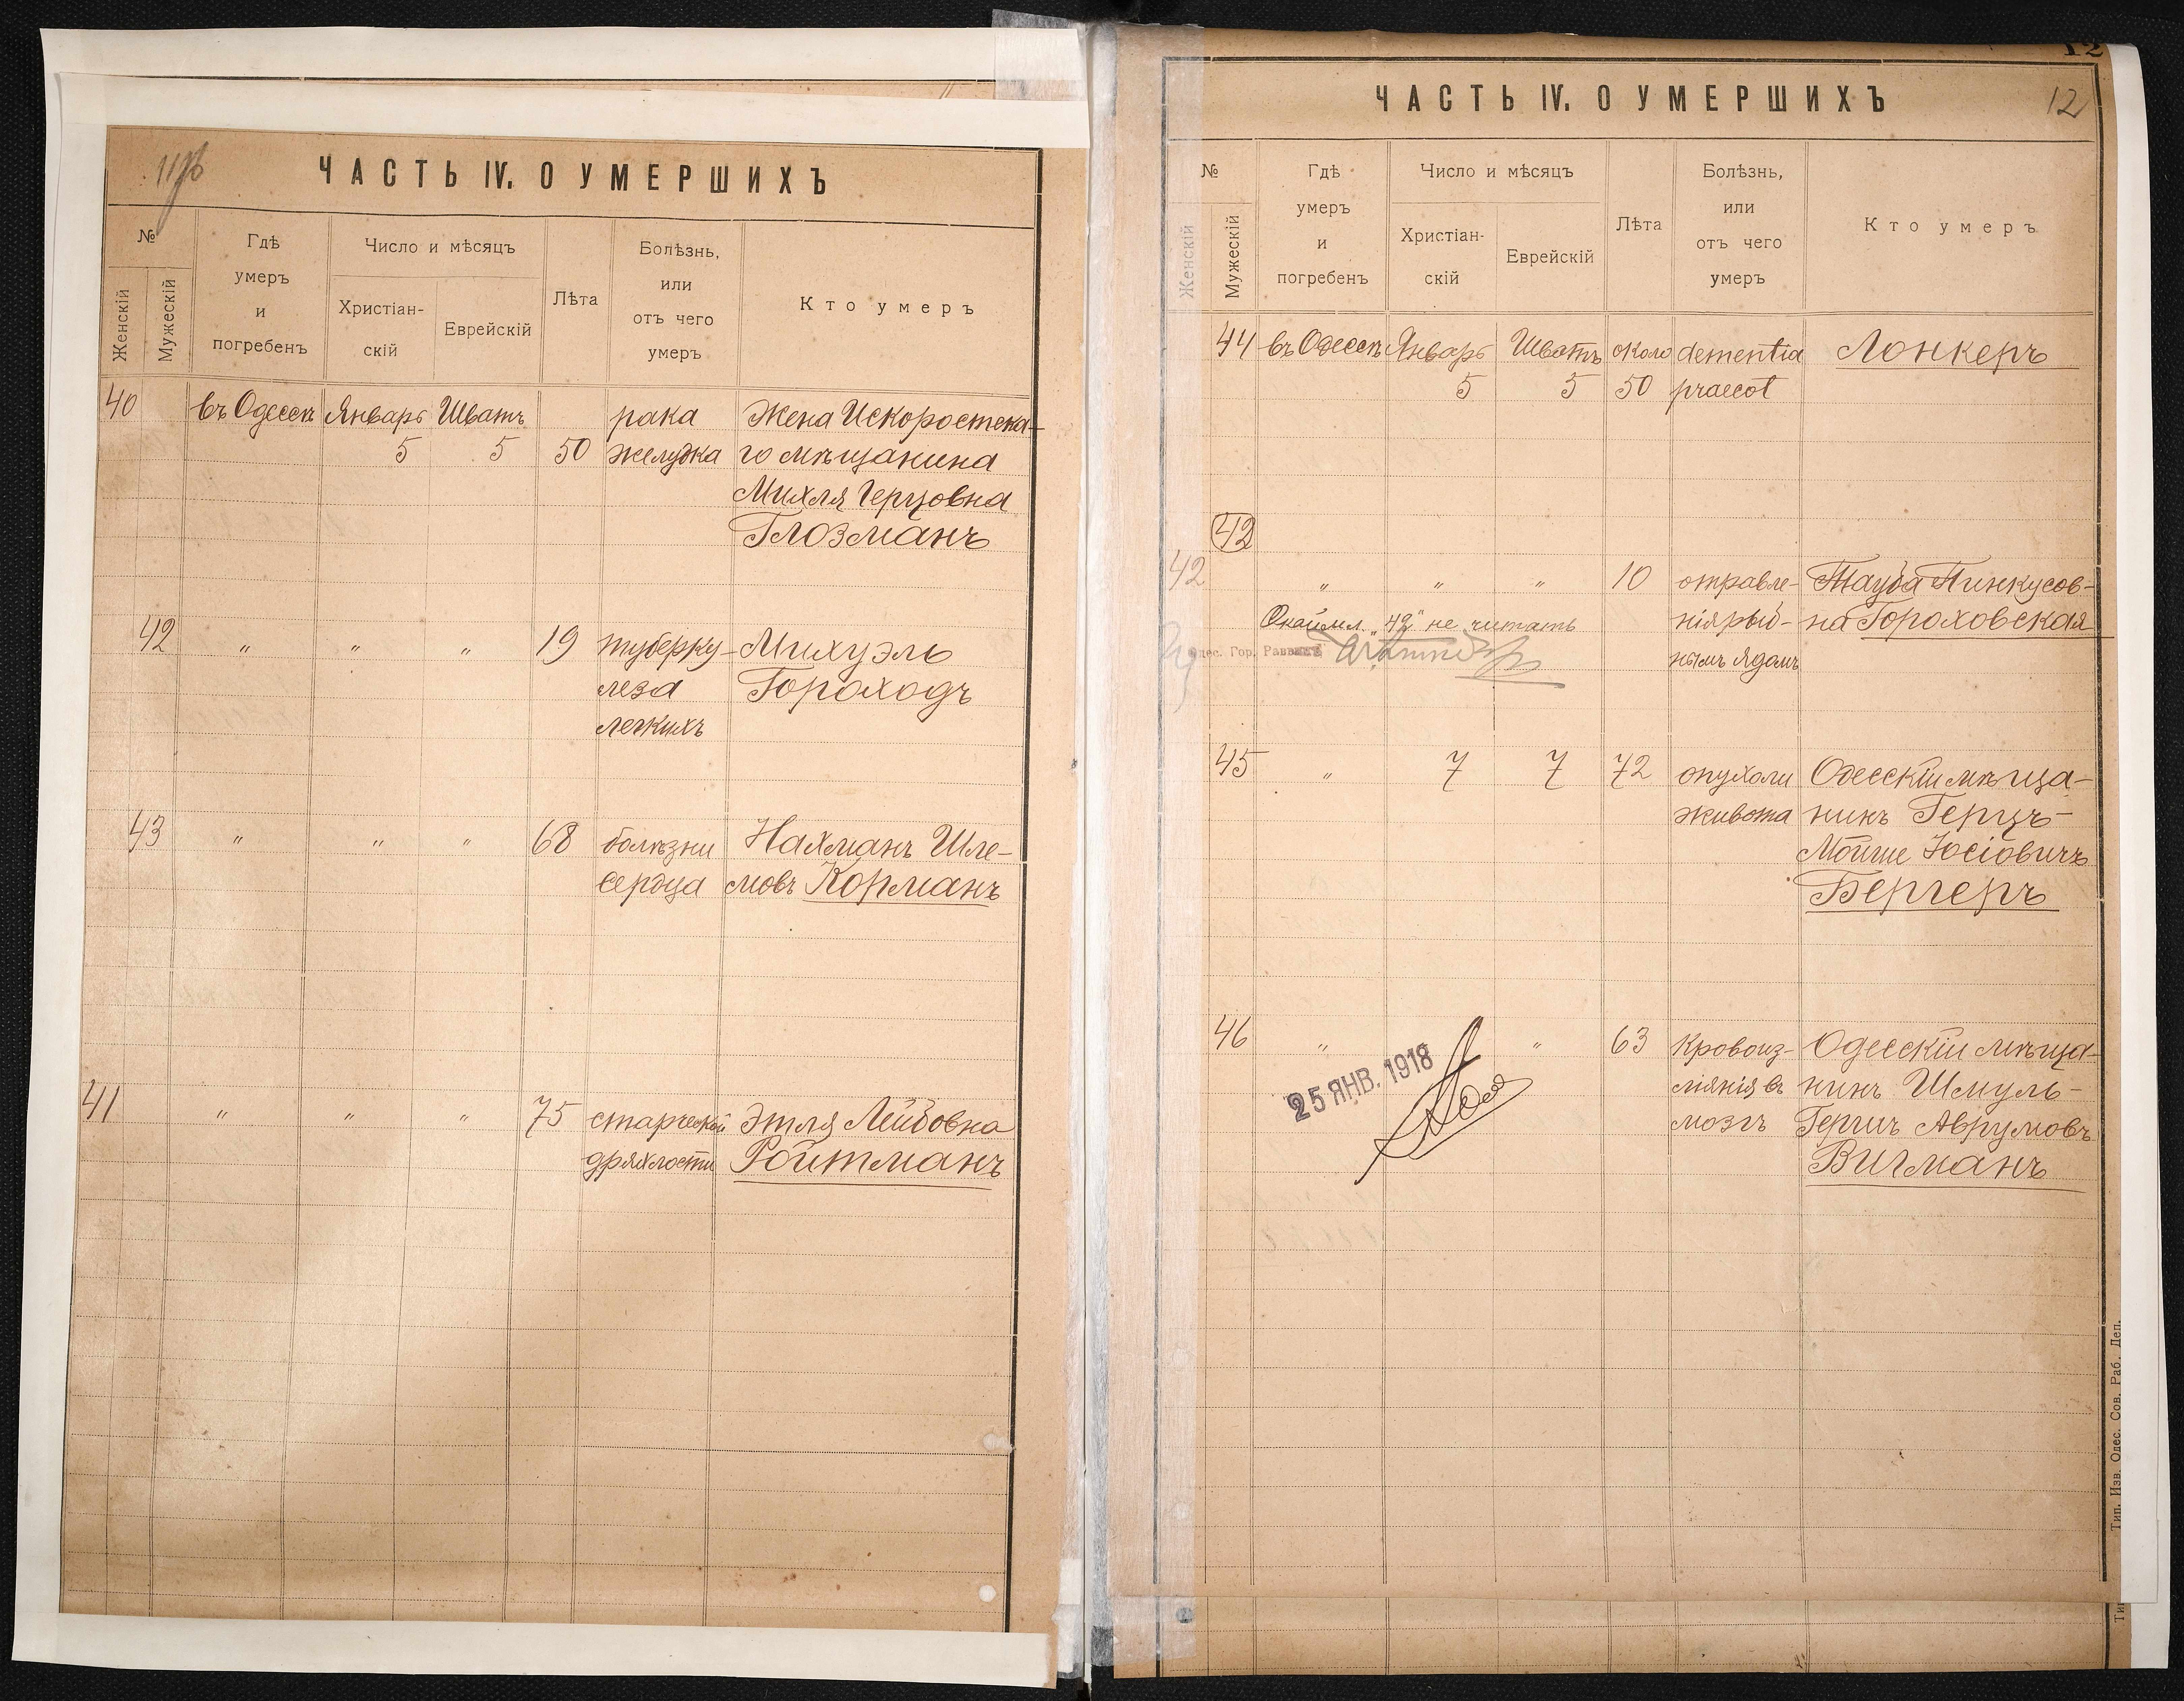 ЧАСТЬ IV. О УМЕРШИХЪ
№
Женскій
Мужескій
Гдѣ
умеръ
и
погребенъ
Число и мѣсяцъ
Христіан-
скій
Еврейскій
Лѣта
Болѣзнь,
или
отъ чего
умеръ
Кто умеръ
40 въ Одессѣ Январь Шватъ рака Жена Искоростска-
5 5 50 желудка го мѣщанина
Михля Герцовна
Глозманъ
42 " " " 19 туберку- Михуэль
леза Гороходъ
легкихъ
43 " " " 68 болѣзни Нахманъ Шле-
сердца мовъ Корманъ
41 " " " 75 старческой Этля Лейбовна
дряхлости Ройтманъ
12
ЧАСТЬ IV. О УМЕРШИХЪ 12
№
Женскій
Мужескій
Гдѣ
умеръ
и
погребенъ
Число и мѣсяцъ
Христіан-
скій
Еврейскій
Лѣта
Болѣзнь,
или
отъ чего
умеръ
Кто умеръ
44 въ Одессѣ Январь Шватъ около dementia Лонкеръ
5 5 50 praecot
42
42 " " " 10 отравле- Тауба Пинкусов-
нія рыб- на Гороховская
Окаймл. "42" не читать
нымъ ядомъ
Одес. Гор. Раввинъ
45 " 7 7 72 опухоли Одесскій мѣща-
живота нинъ Герцъ-
Мойше Іосіовичъ
Бергеръ
46 " " 63 Кровоиз- Одесскій мѣща-
ліянія въ нинъ Шмуль-
мозгъ Гершъ Аврумовъ
Вигманъ
25 ЯНВ. 1918
Тип. Изв. Одес. Сов. Раб. Деп.